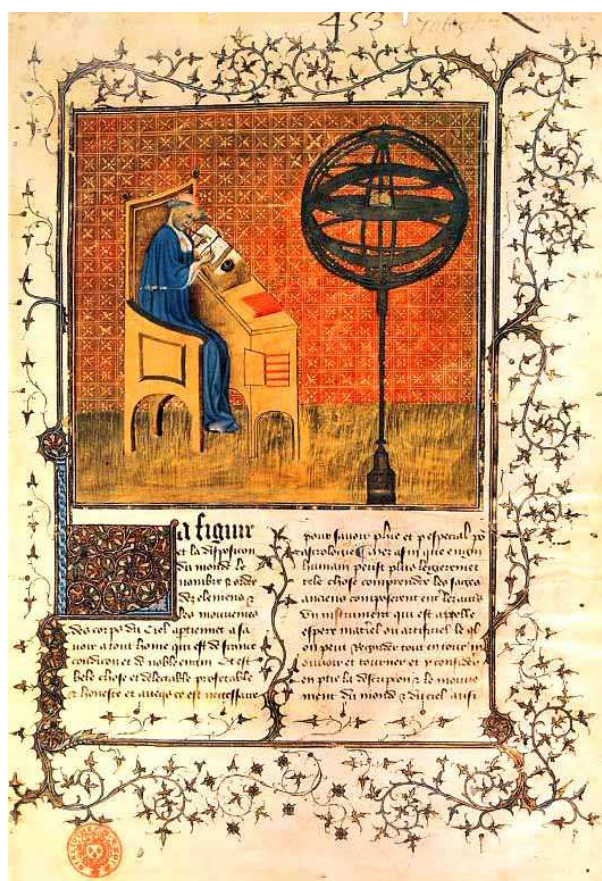 453
La figure
et la disposicion
du monde le
nombre & ordre
dez elemens &
les mouvemens
des corps du ciel
voir a tout home qui est de
condicion et de noble engin Et est
bele chose et delectable profetable
& honeste et est necessaire
pour savoir phie et p especial
astrologie afin que engin
humain peust plus legierement
tele chose comprendre les sages
anciens composerent
Un instrument qui est appelle
espere materiel ou artificiel le ql
on peut regarder tout entour m
ouvoir et tourner et
en ptie la descripcion & le mouve
ment du monde & du ciel aussi